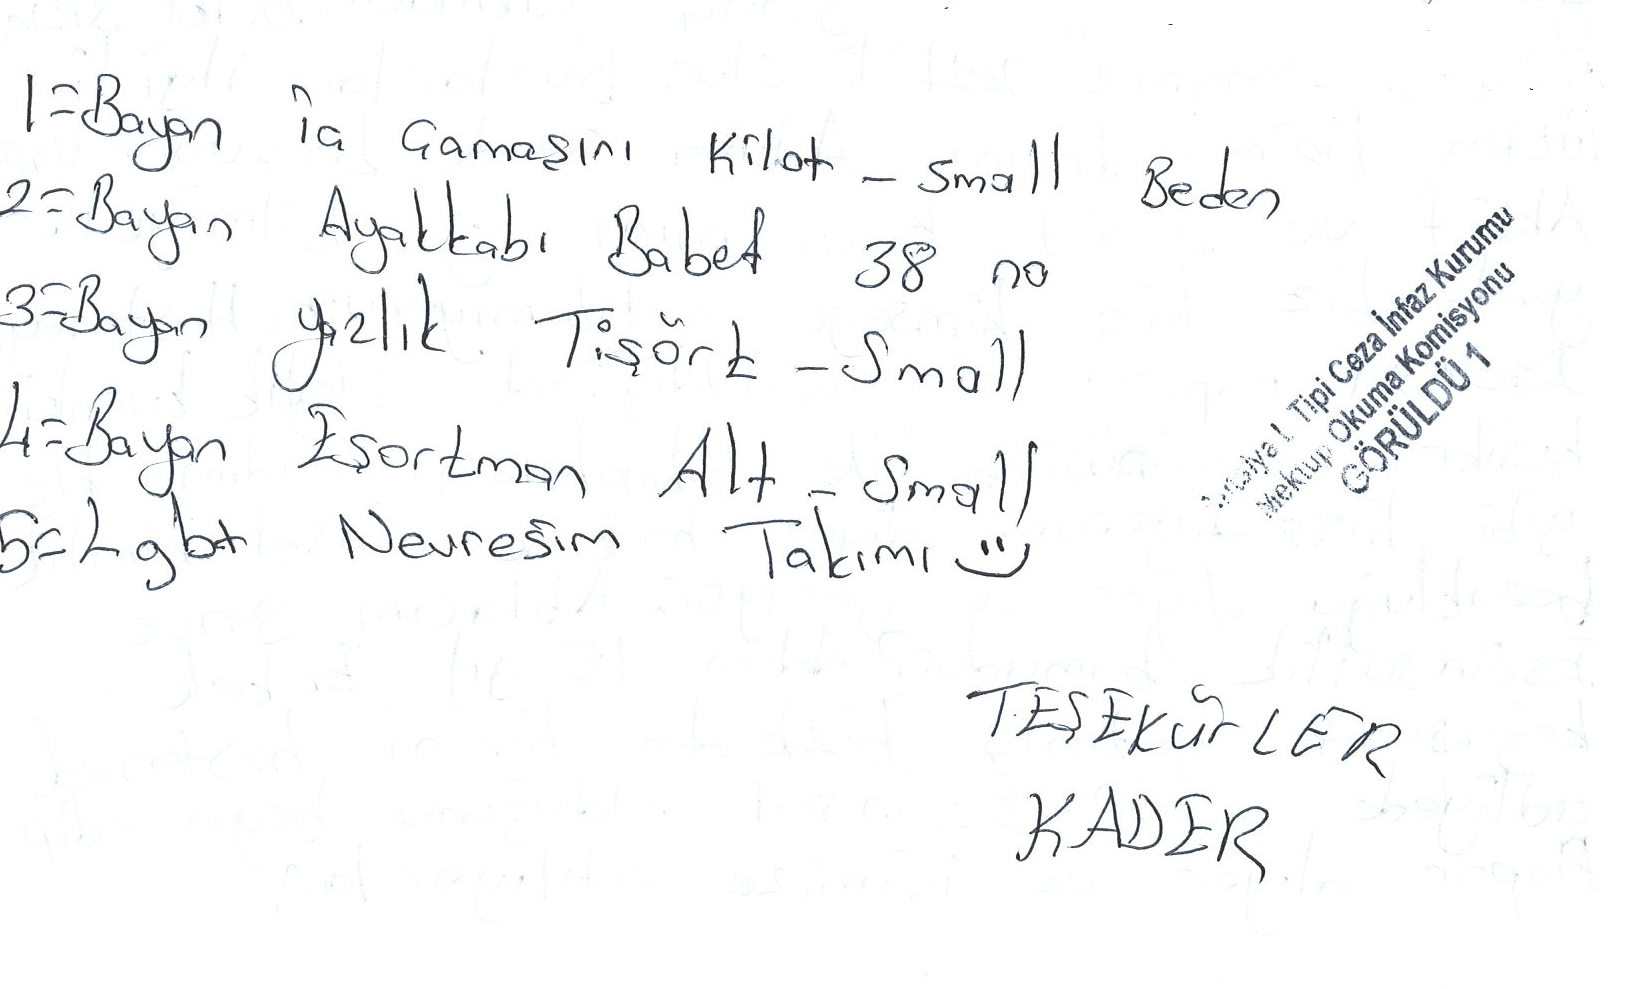 1=Bayan iç Çamaşını Kilot - Small Beden
2=Bayan Ayakkabı Babet 38 no
3=Bayan yazlık Tişört - Small
4=Bayan Eşortman Alt - Small
5=Lgbt Nevresim Takımı :)
L Tipi Ceza İnfaz Kurumu
Mektup Okuma Komisyonu
GÖRÜLDÜ 1
TEŞEKÜrLER
KADER